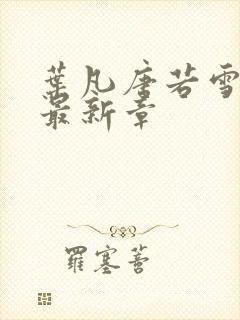 葉凡唐若雪
最新章
羅塞菩